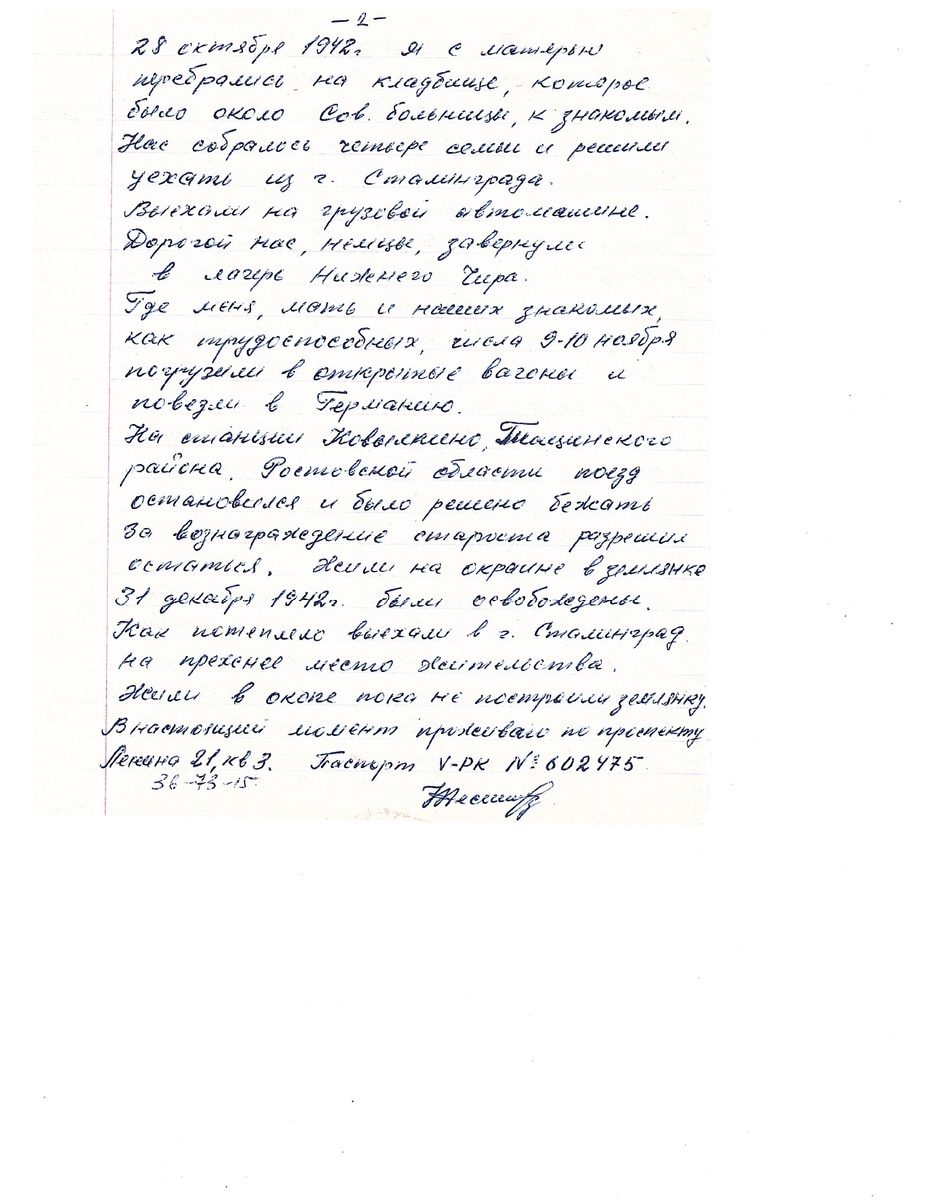 — 2 —
28 октября 1942г. я с матерью
перебрались на кладбище, которое
было около Сов. больници, к знакомым.
Нас собралось четыре семьи и решили
уехать из г. Сталинграда.
Выехали на грузовой автомашине.
Дорогой нас, немцы, завернули
в лагерь Нижнего Чира.
Где меня, мать и наших знакомых,
как трудоспособных, числа 9-10 ноября
погрузили в открытые вагоны и
повезли в Германию.
На станции Ковылкино, Тацинского
района, Ростовской области поезд
остановился и было решено бежать
За вознаграждение староста разрешил
остаться. Жили на окраине в землянке
31 декабря 1942г. были освобождены.
Как потеплело выехали в г. Сталинград
на прежнее место жительства.
Жили в окопе пока не построили землянку.
В настоящий момент проживаю по проспекту
Ленина 21, кв 3. Паспорт V-РК № 602475
36-73-15.